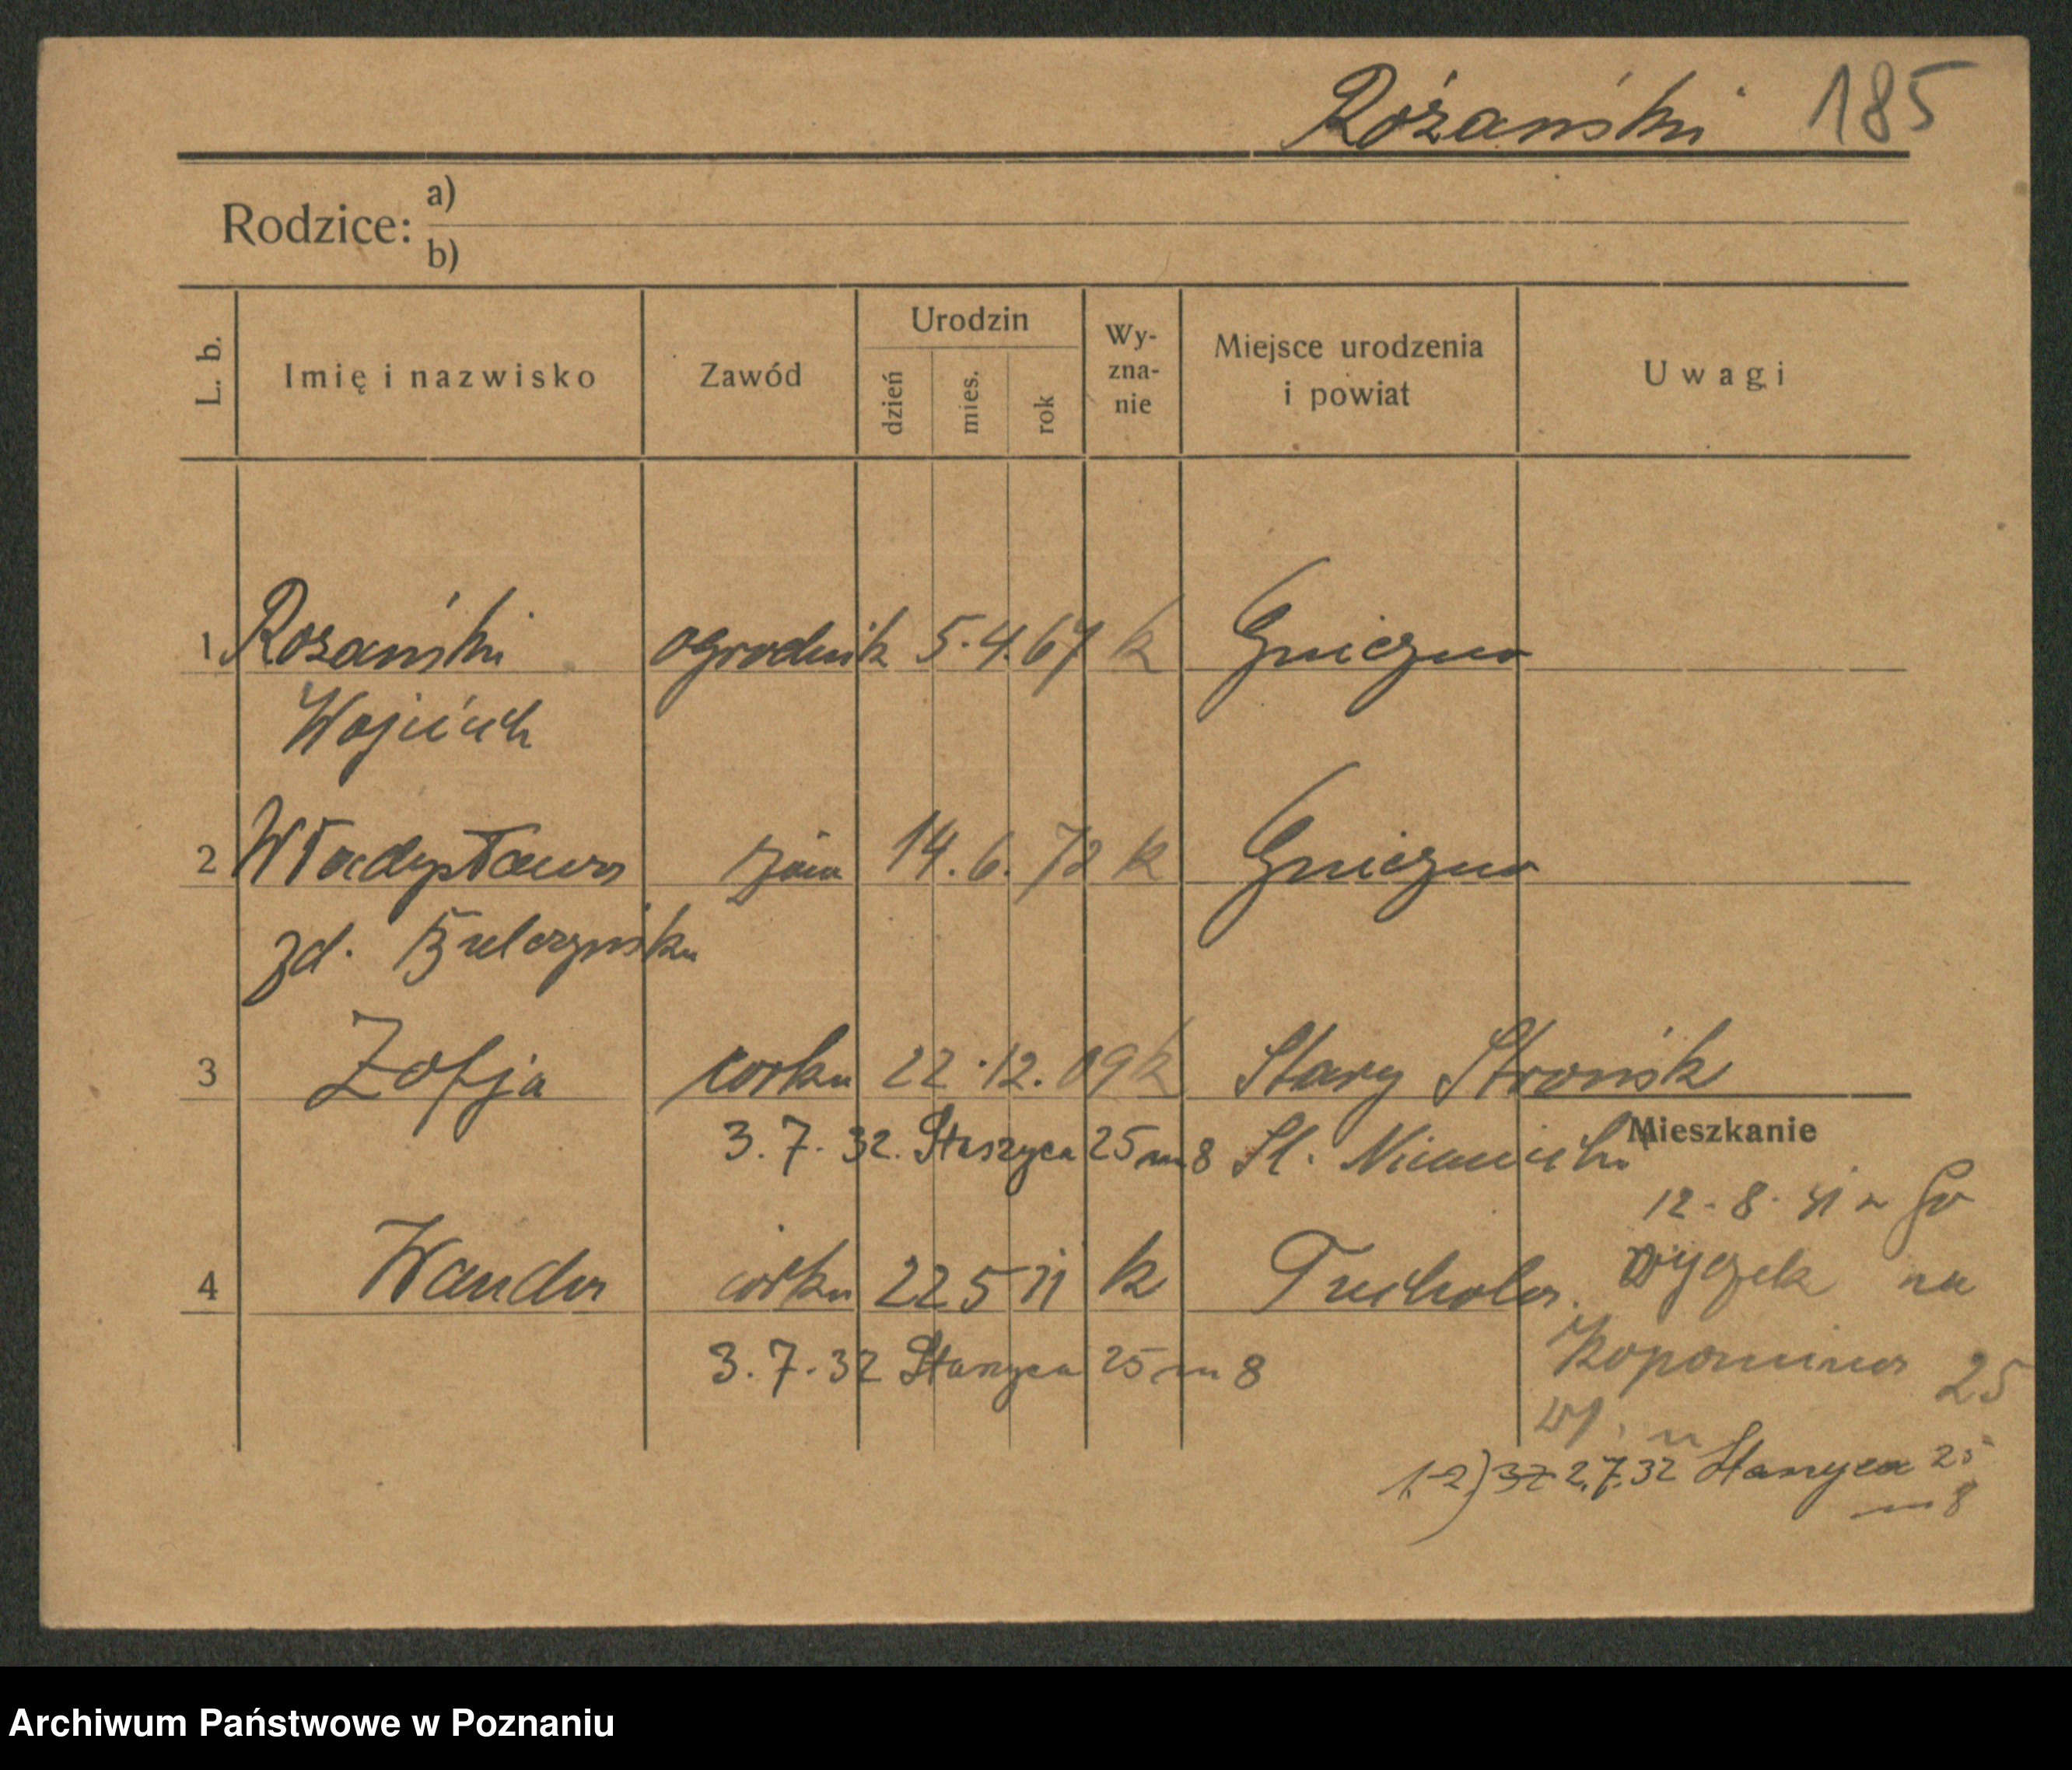 Różański 185
Rodzice: a)
b)
L. b.
Imię i nazwisko
Zawód
Urodzin
dzień
mies.
rok
Wy-
zna-
nie
Miejsce urodzenia
i powiat
Uwagi
1 Rózański ogrodnik 5.4.67 k Gniezno
Wojciech
2 Władysława żona 14.6.72 k Gniezno
zd.
3 Zofja corka 22.12.09 k Stary Strońsk
3.7.32. Staszyca 25 m 8
Mieszkanie
12.8.
4 Wanda córka 22 5 11 k Tuchola.
na
3.7.32 Staszyca 25 m 8
25
1-2) 2.7.32 Staszyca 25
m 8
Archiwum Państwowe w Poznaniu